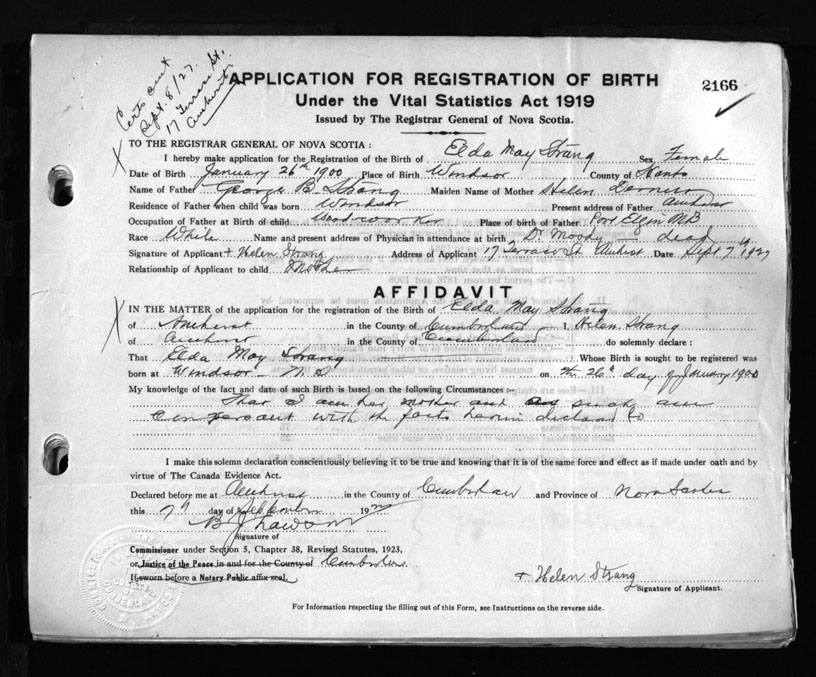 Certs sent
Sept. 8/27.
17 Terrace St.
Amherst
APPLICATION FOR REGISTRATION OF BIRTH
2166
Under the Vital Statistics Act 1919
Issued by The Registrar General of Nova Scotia.
TO THE REGISTRAR GENERAL OF NOVA SCOTIA:
I hereby make application for the Registration of the Birth of Elda May Strang Sex Female
Date of Birth January 26th 1900 Place of Birth Windsor County of Hants
Name of Father George B. Strang Maiden Name of Mother Helen
Residence of Father when child was born Windsor Present address of Father Amherst
Occupation of Father at Birth of child Woodworker Place of birth of Father Port Elgin NB
Race White Name and present address of Physician in attendance at birth Dr. Moody — dead
Signature of Applicant + Helen Strang Address of Applicant 17 Terrace St Amherst Date Sept 7th 1927
Relationship of Applicant to child Mother
AFFIDAVIT
IN THE MATTER of the application for the registration of the Birth of Elda May Strang
of Amherst in the County of Cumberland I, Helen Strang
of Amherst in the County of Cumberland do solemnly declare:
That Elda May Strang Whose Birth is sought to be registered was
born at Windsor N.S on the 26th day of January 1900
My knowledge of the fact and date of such Birth is based on the following Circumstances :-
That I am her mother and as such am
conversant with the facts herein declared to
I make this solemn declaration conscientiously believing it to be true and knowing that it is of the same force and effect as if made under oath and by
virtue of The Canada Evidence Act.
Declared before me at Amherst in the County of Cumberland and Province of Nova Scotia
this 7th day of September 1927
B J Lawson
Signature of
Commissioner under Section 5, Chapter 38, Revised Statutes, 1923,
or Justice of the Peace in and for the County of Cumberland
If sworn before a Notary Public affix seal.
+ Helen Strang
Signature of Applicant.
For Information respecting the filling out of this Form, see Instructions on the reverse side.